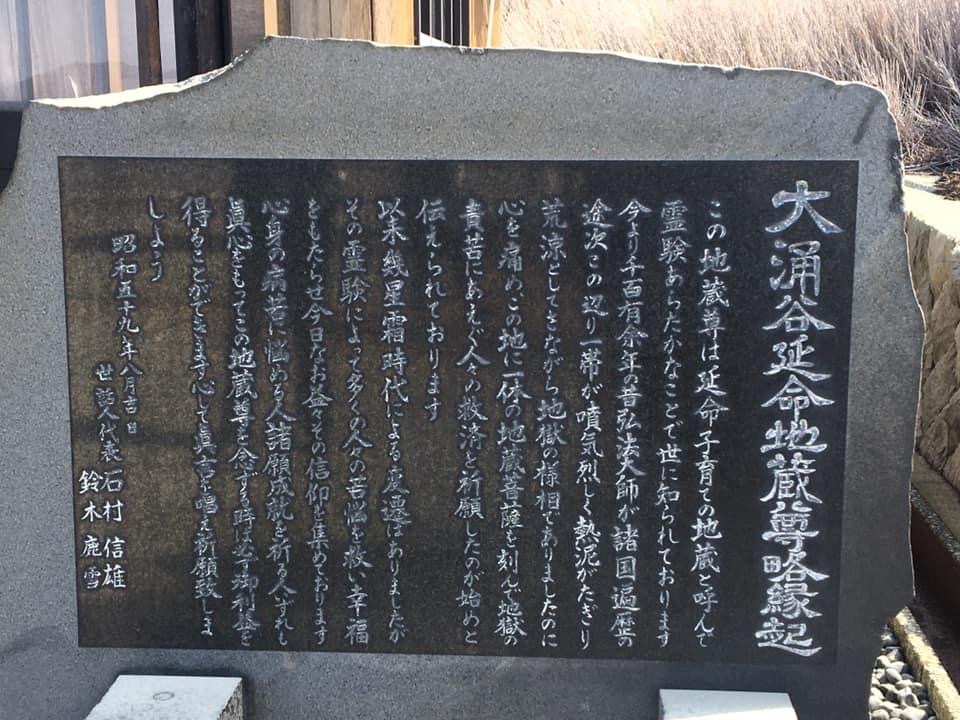 大涌谷延命地蔵尊略縁起
この地蔵尊は延命子育ての地蔵と呼んで
霊験あらたかなことで世に知られております
今より千百有余年の昔弘法大師が諸国遍歴の
途次この辺り一帯が噴気烈しく熱泥がたぎり
荒涼としてさながら地獄の様相でありましたのに
心を痛めこの地に一体の地蔵菩薩を刻んで地獄の
責苦にあえぐ人々の救済と祈願したのが始めと
伝えられております
以来幾星霜時代による変遷はありましたが
その霊験によって多くの人々の苦悩を救い幸福
をもたらせ今日なお益々その信仰を集めております
心身の病苦に悩める人諸願成就を祈る人いずれも
眞心をもってこの地蔵尊を念ずる時は必ず御利益を
得ることができます心して眞言を唱え祈願致しま
しょう
昭和五十九年八月吉日
世話人代表石村信雄
鈴木鹿雪